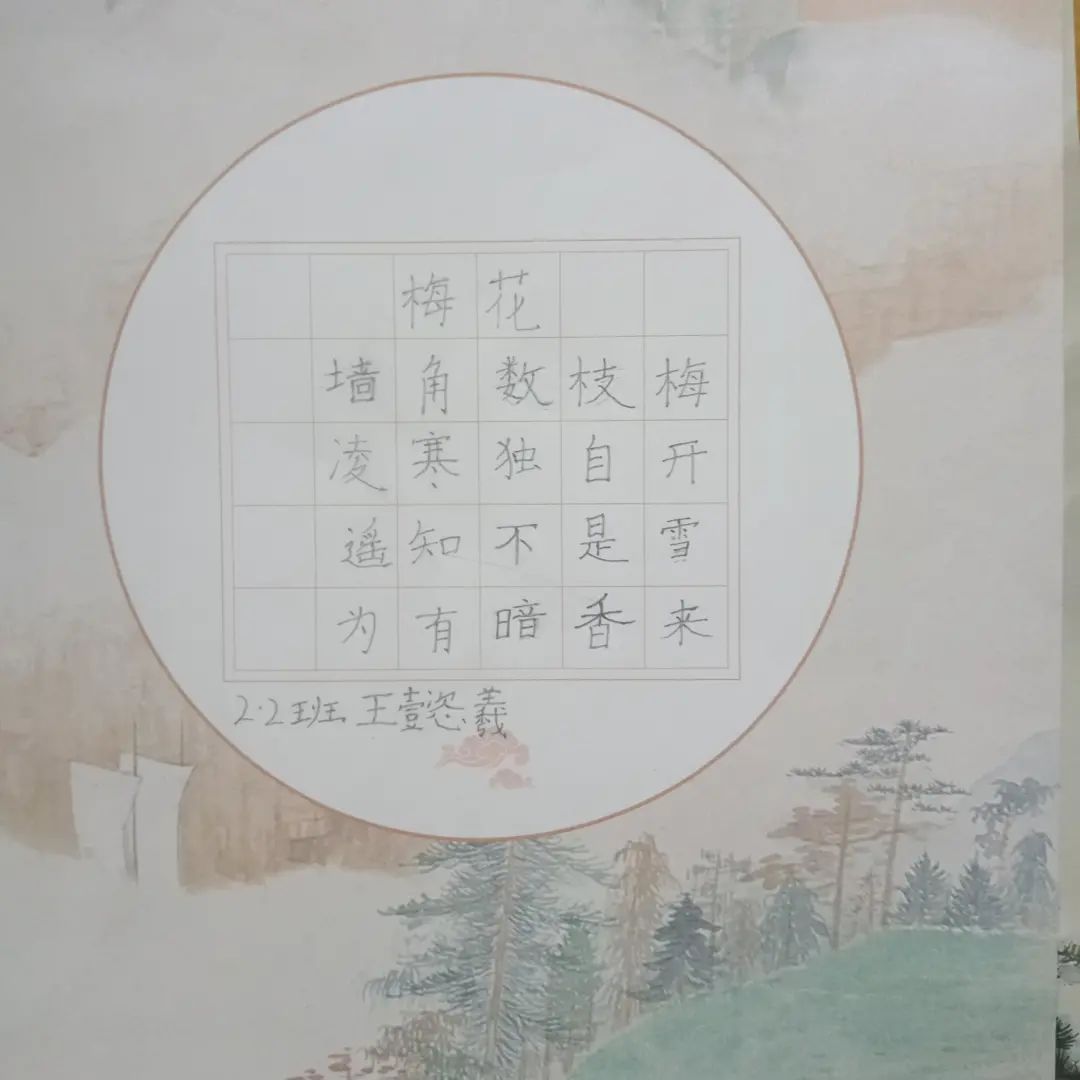 梅花
墙角数枝梅
凌寒独自开
遥知不是雪
为有暗香来
2.2班 王壹恣羲